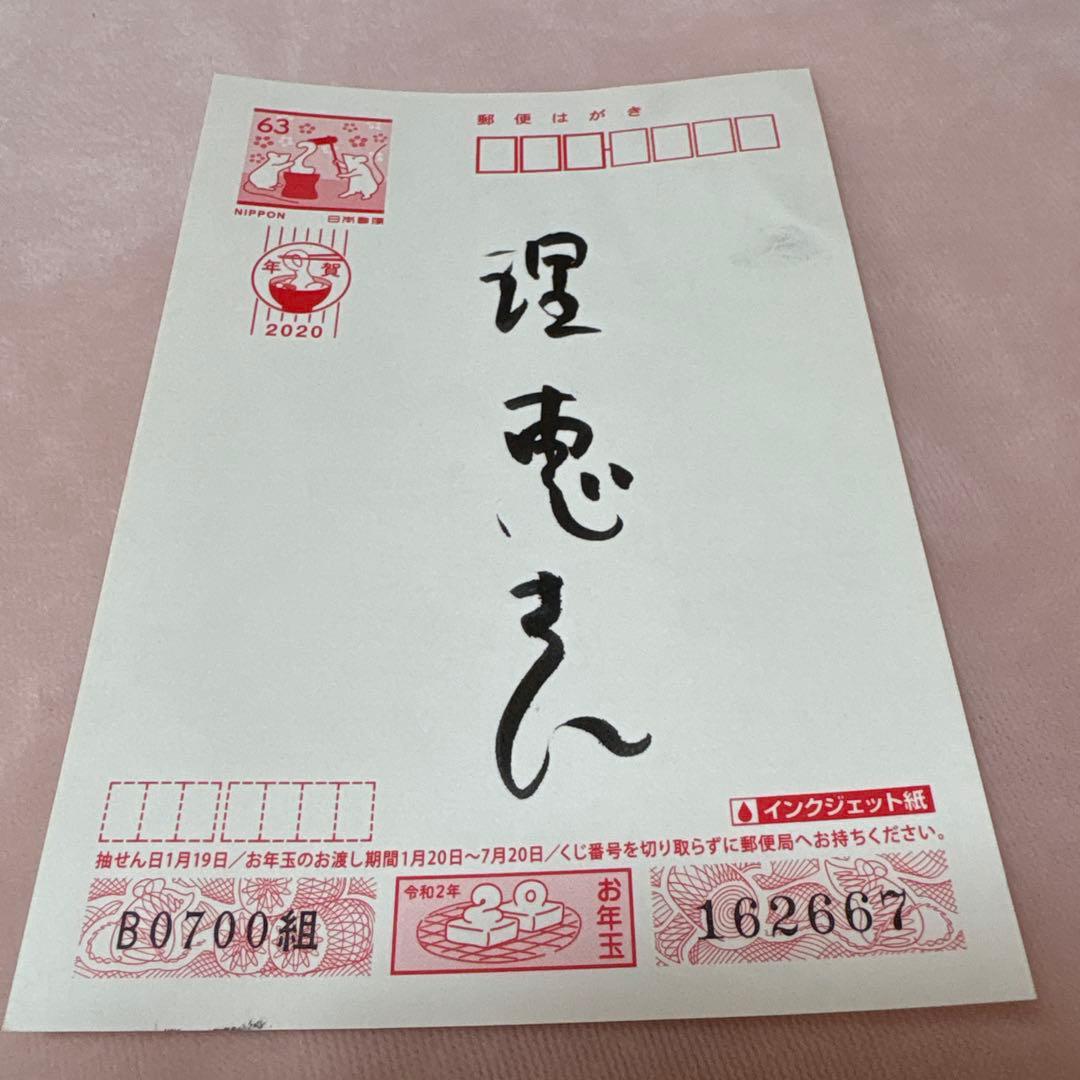 63
NIPPON
日本郵便
年賀
2020
郵便はがき
理恵さん
インクジェット紙
抽せん日1月19日／お年玉のお渡し期間1月20日〜7月20日／くじ番号を切り取らずに郵便局へお持ちください。
B0700組
令和2年
20
お年玉
162667